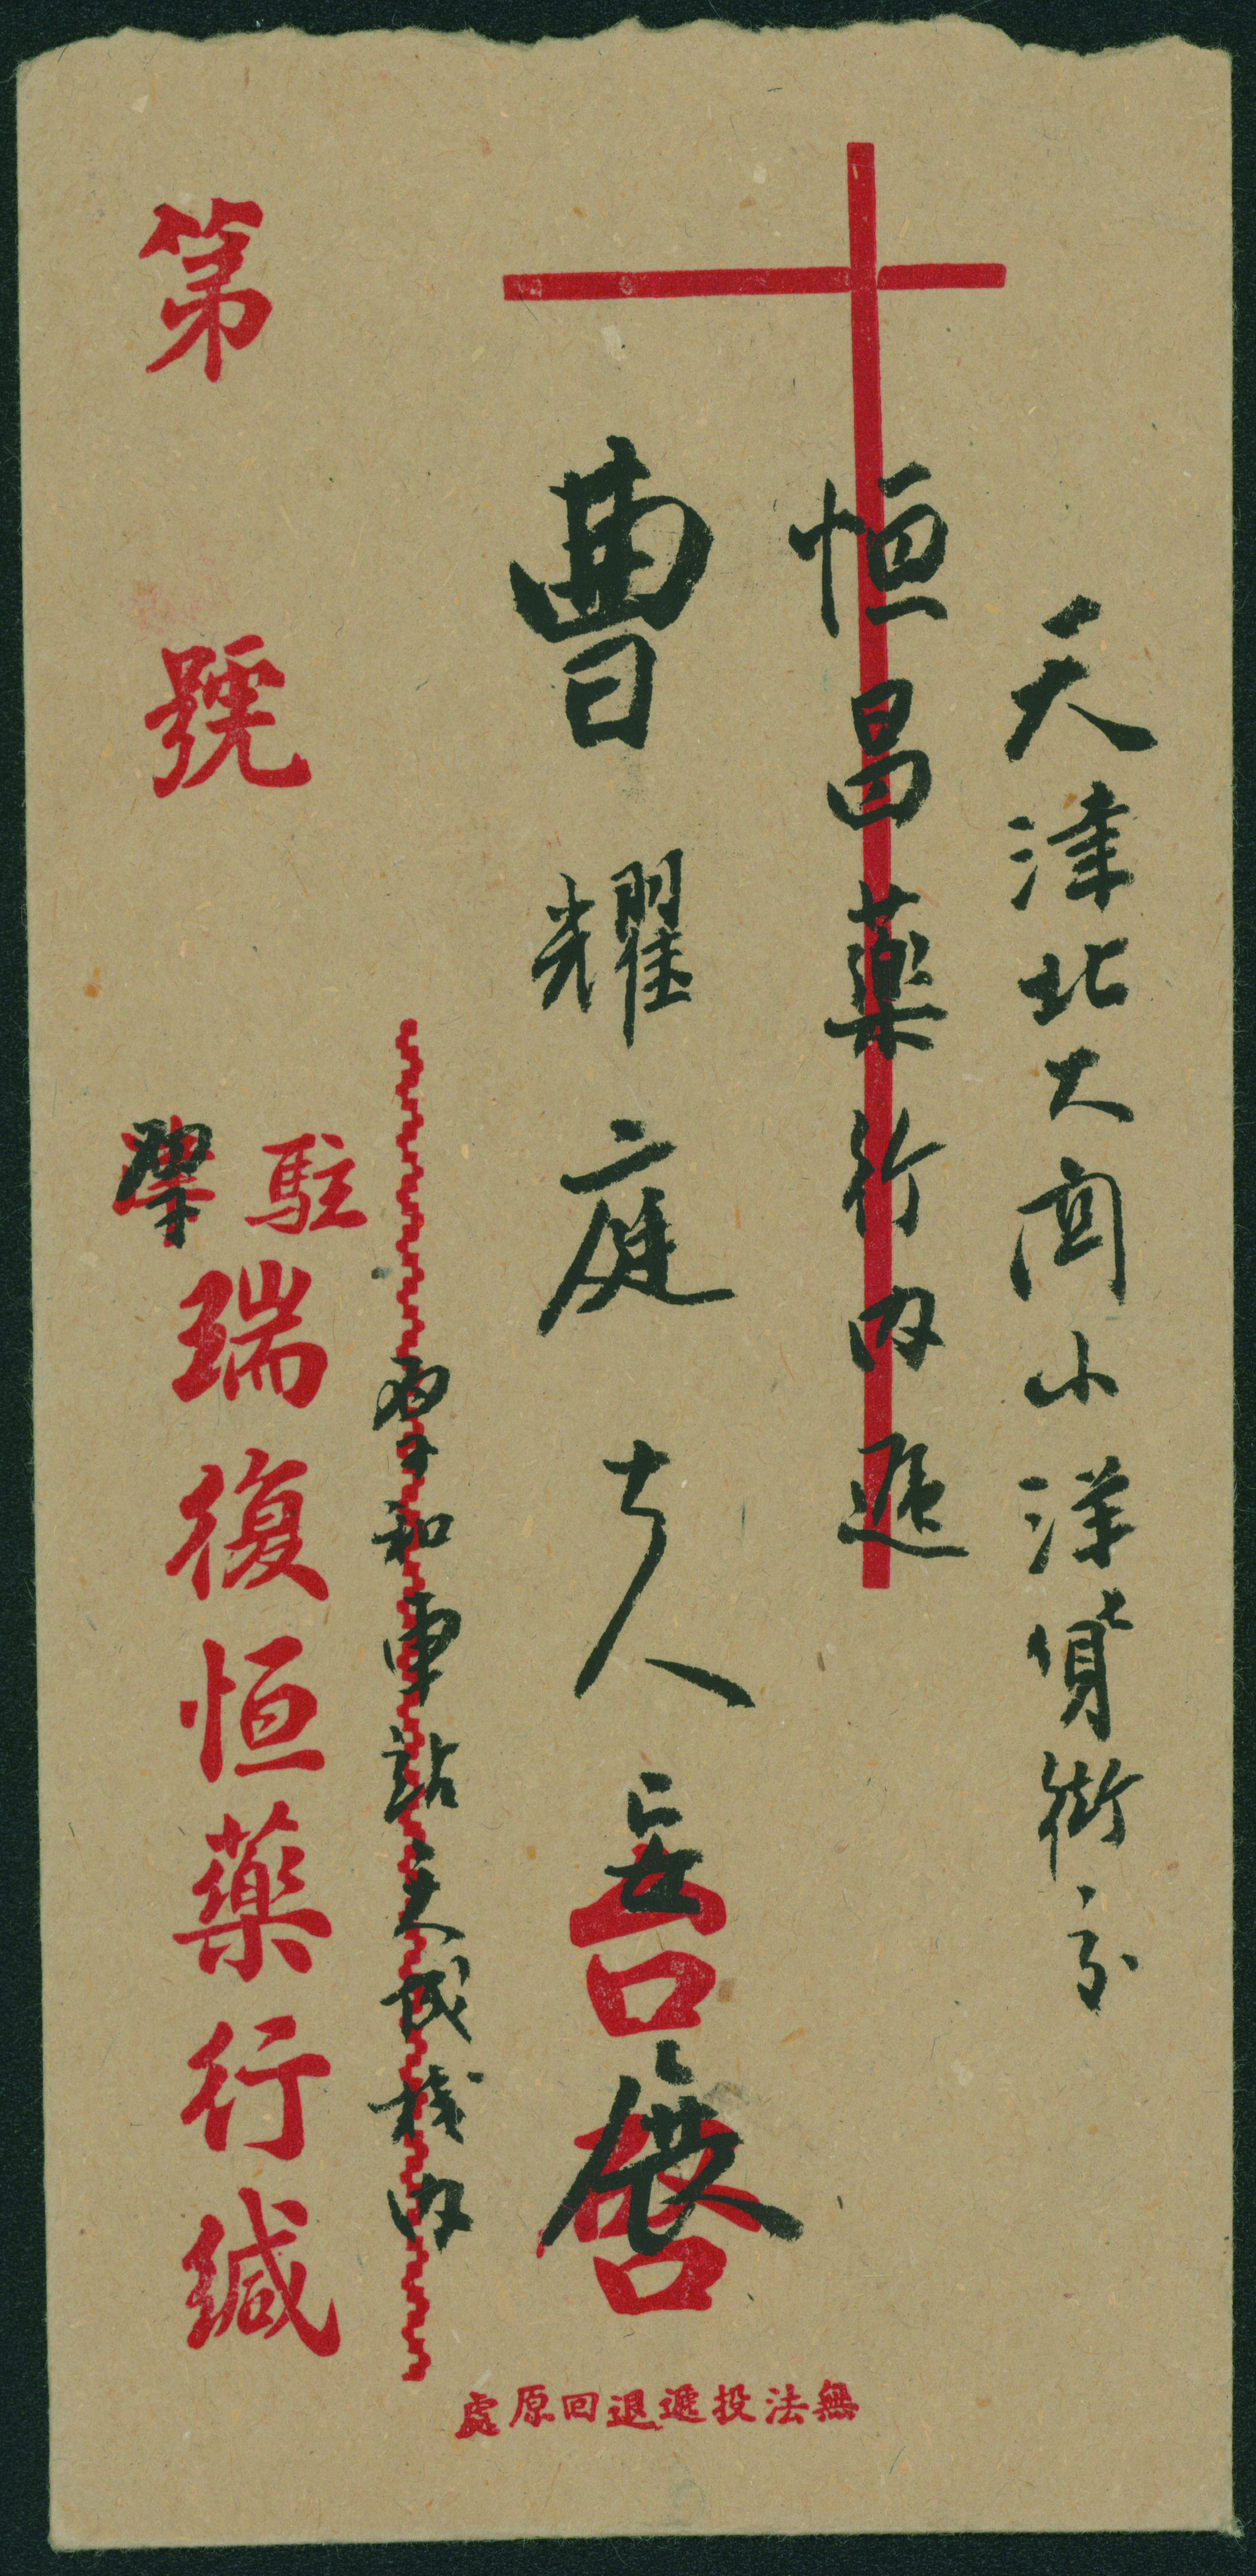 天津北大関小洋貨街交
恒昌藥行内遞
曹耀庭大人安展
台啓
和車站天成棧内
第 號
駐
瑞復恒藥行緘
無法投遞退回原處